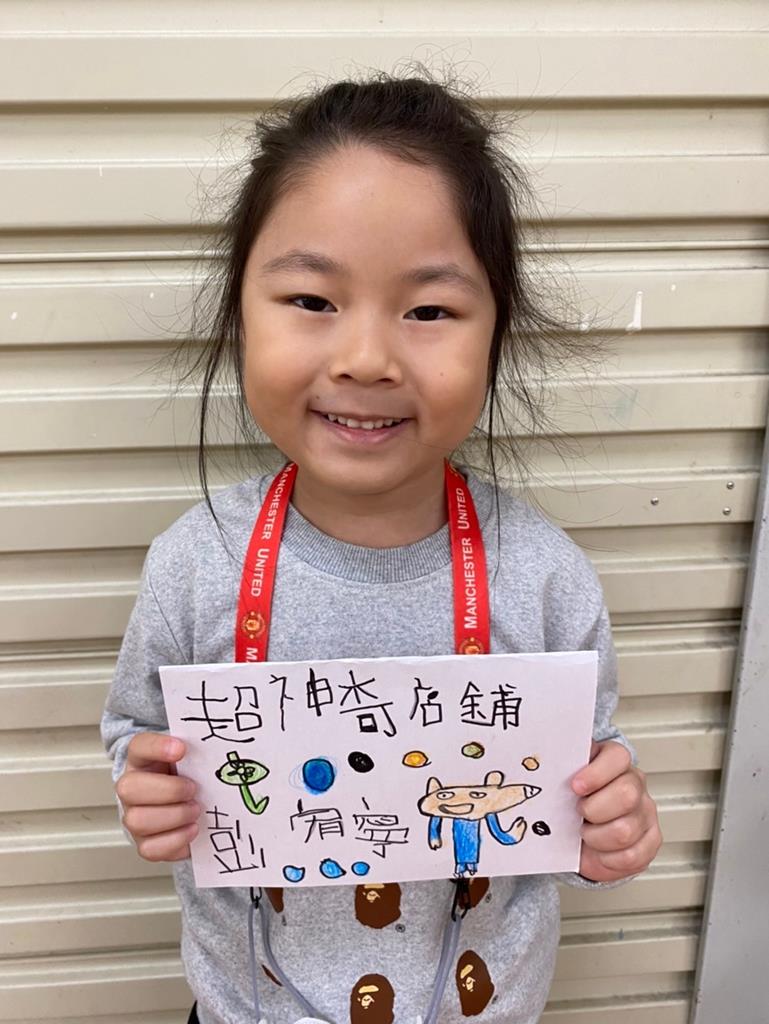 MANCHESTER UNITED
MANCHESTER UNITED
M
超神奇店舖
彭宥寧